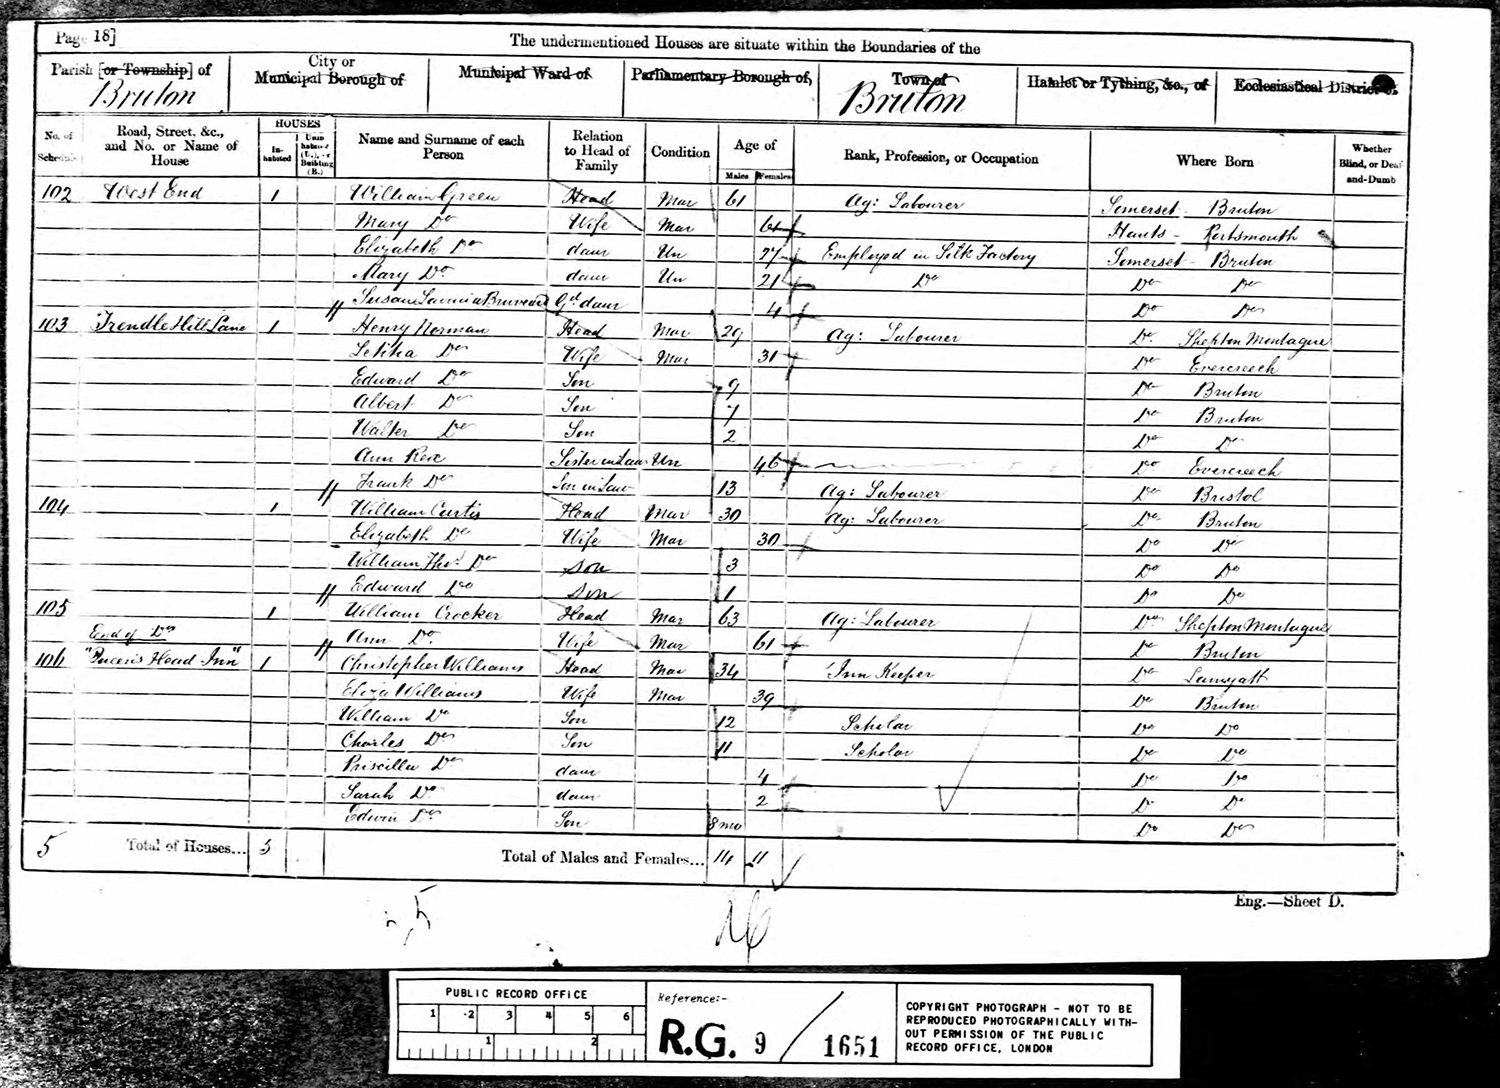 Page 18]
The undermentioned Houses are situate within the Boundaries of the
Parish [or Township] of Bruton
City or Municipal Borough of
Municipal Ward of
Parliamentary Borough of,
Town of Bruton
Hamlet or Tything, &c., of
Ecclesiastical District of
No. of Schedule
Road, Street, &c., and No. or Name of House
HOUSES
Inhabited
Uninhabited (U.), or Building (B.)
Name and Surname of each Person
Relation to Head of Family
Condition
Age of
Males
Females
Rank, Profession, or Occupation
Where Born
Whether Blind, or Deaf-and-Dumb
102 West End 1 William Green Head Mar 61 Ag: Labourer Somerset - Bruton
Mary Do Wife Mar 61 Hants - Portsmouth
Elizabeth Do daur Un 27 Employed in Silk Factory Somerset - Bruton
Mary Do daur Un 21 Do Do Do
Susan Gd daur 4 Do Do
103 Trendle Hill Lane 1 Henry Norman Head Mar 29 Ag: Labourer Do Shepton Montague
Letitia Do Wife Mar 31 Do Evercreech
Edward Do Son 9 Do Bruton
Albert Do Son 7 Do Bruton
Walter Do Son 2 Do Do
Ann Sister in Law Un 46 Do Evercreech
Frank Do Son in Law 13 Ag: Labourer Do Bristol
104 1 William Curtis Head Mar 30 Ag: Labourer Do Bruton
Elizabeth Do Wife Mar 30 Do Do
William Thos Do Son 3 Do Do
// Edward Do Son 1 Do Do
105 1 William Crocker Head Mar 63 Ag: Labourer Do Shepton Montague
End of Do // Ann Do Wife Mar 61 Do Bruton
106 "Queen's Head Inn" 1 Christopher Williams Head Mar 34 Inn Keeper Do Lamyatt
Eliza Williams Wife Mar 39 Do Bruton
William Do Son 12 Scholar Do Do
Charles Do Son 11 Scholar Do Do
Priscilla Do daur 4 Do Do
Sarah Do daur 2 Do Do
Edwin Do Son 8 mo Do Do
5 Total of Houses... 5 Total of Males and Females... 14 11
Eng.—Sheet D.
PUBLIC RECORD OFFICE
1 2 3 4 5 6
1 2
Reference:-
R.G. 9 / 1651
COPYRIGHT PHOTOGRAPH - NOT TO BE
REPRODUCED PHOTOGRAPHICALLY WITH-
OUT PERMISSION OF THE PUBLIC
RECORD OFFICE, LONDON